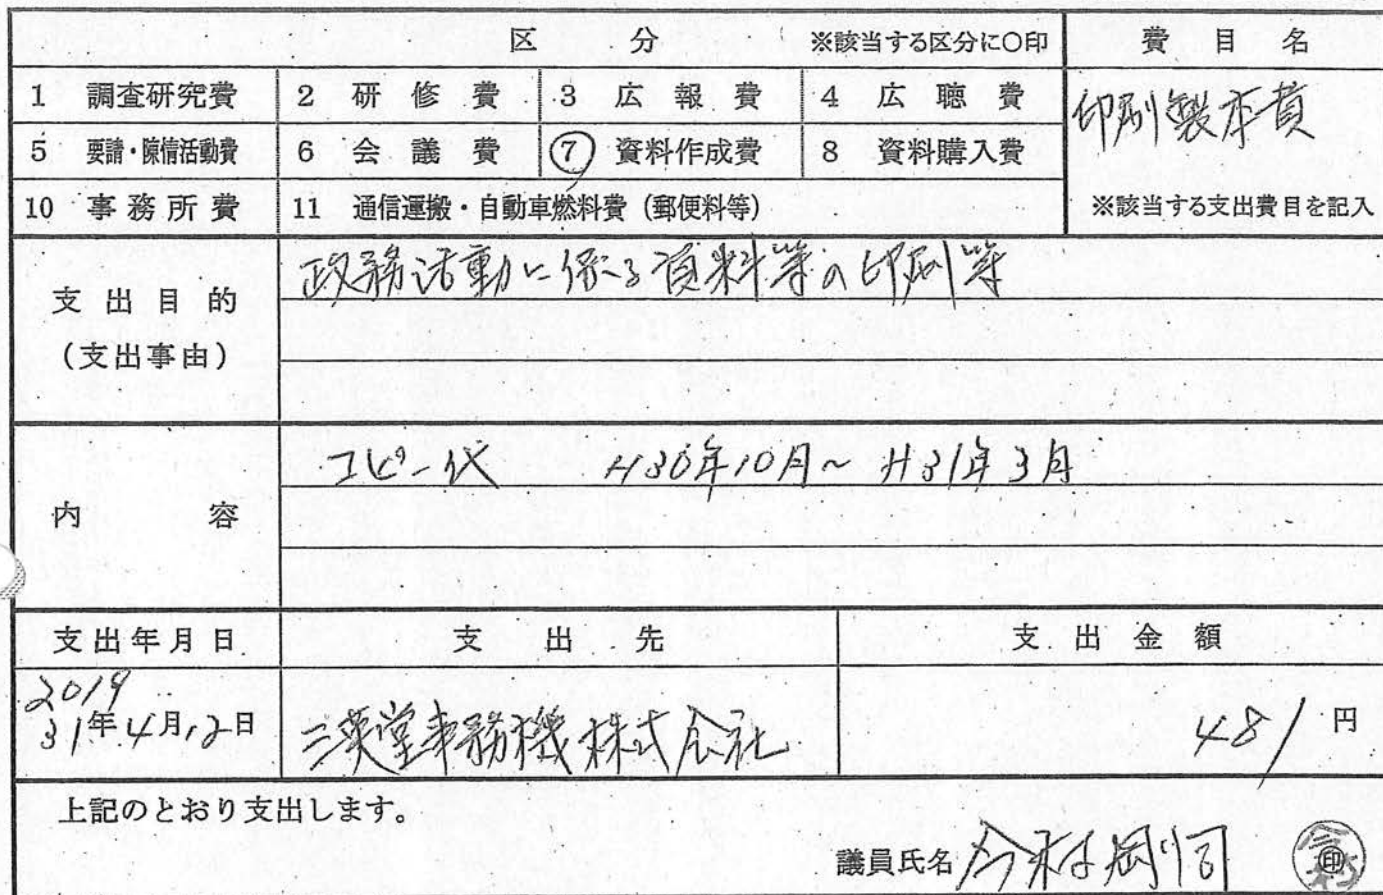 区分 ※該当する区分に○印 費目名
1 調査研究費 2 研修費 3 広報費 4 広聴費 印刷製本費
5 要請・陳情活動費 6 会議費 ⑦ 資料作成費 8 資料購入費
10 事務所費 11 通信運搬・自動車燃料費(郵便料等) ※該当する支出費目を記入
支出目的
(支出事由)
政務活動に係る資料等の印刷等
内容
コピー代 H30年10月~H31年3月
支出年月日 支出先 支出金額
2019
31年4月12日 三英堂事務機株式会社 481円
上記のとおり支出します。
議員氏名 今村岡司 印